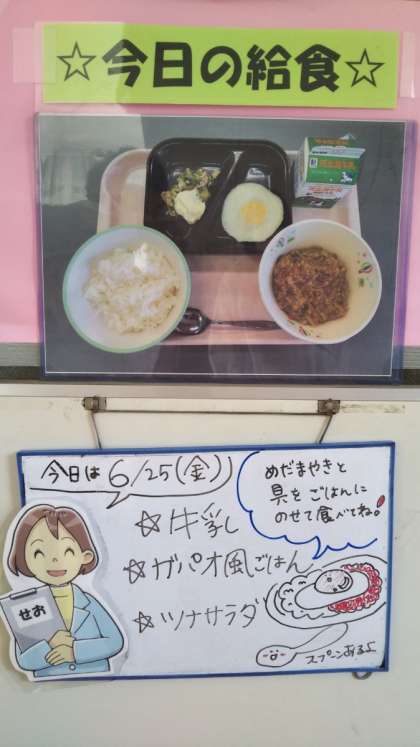 ☆今日の給食☆
今日は 6/25(金)
めだまやきと
具をごはんに
のせて食べてね!
☆牛乳
☆ガパオ風ごはん
☆ツナサラダ
せお
スプーンあるよ